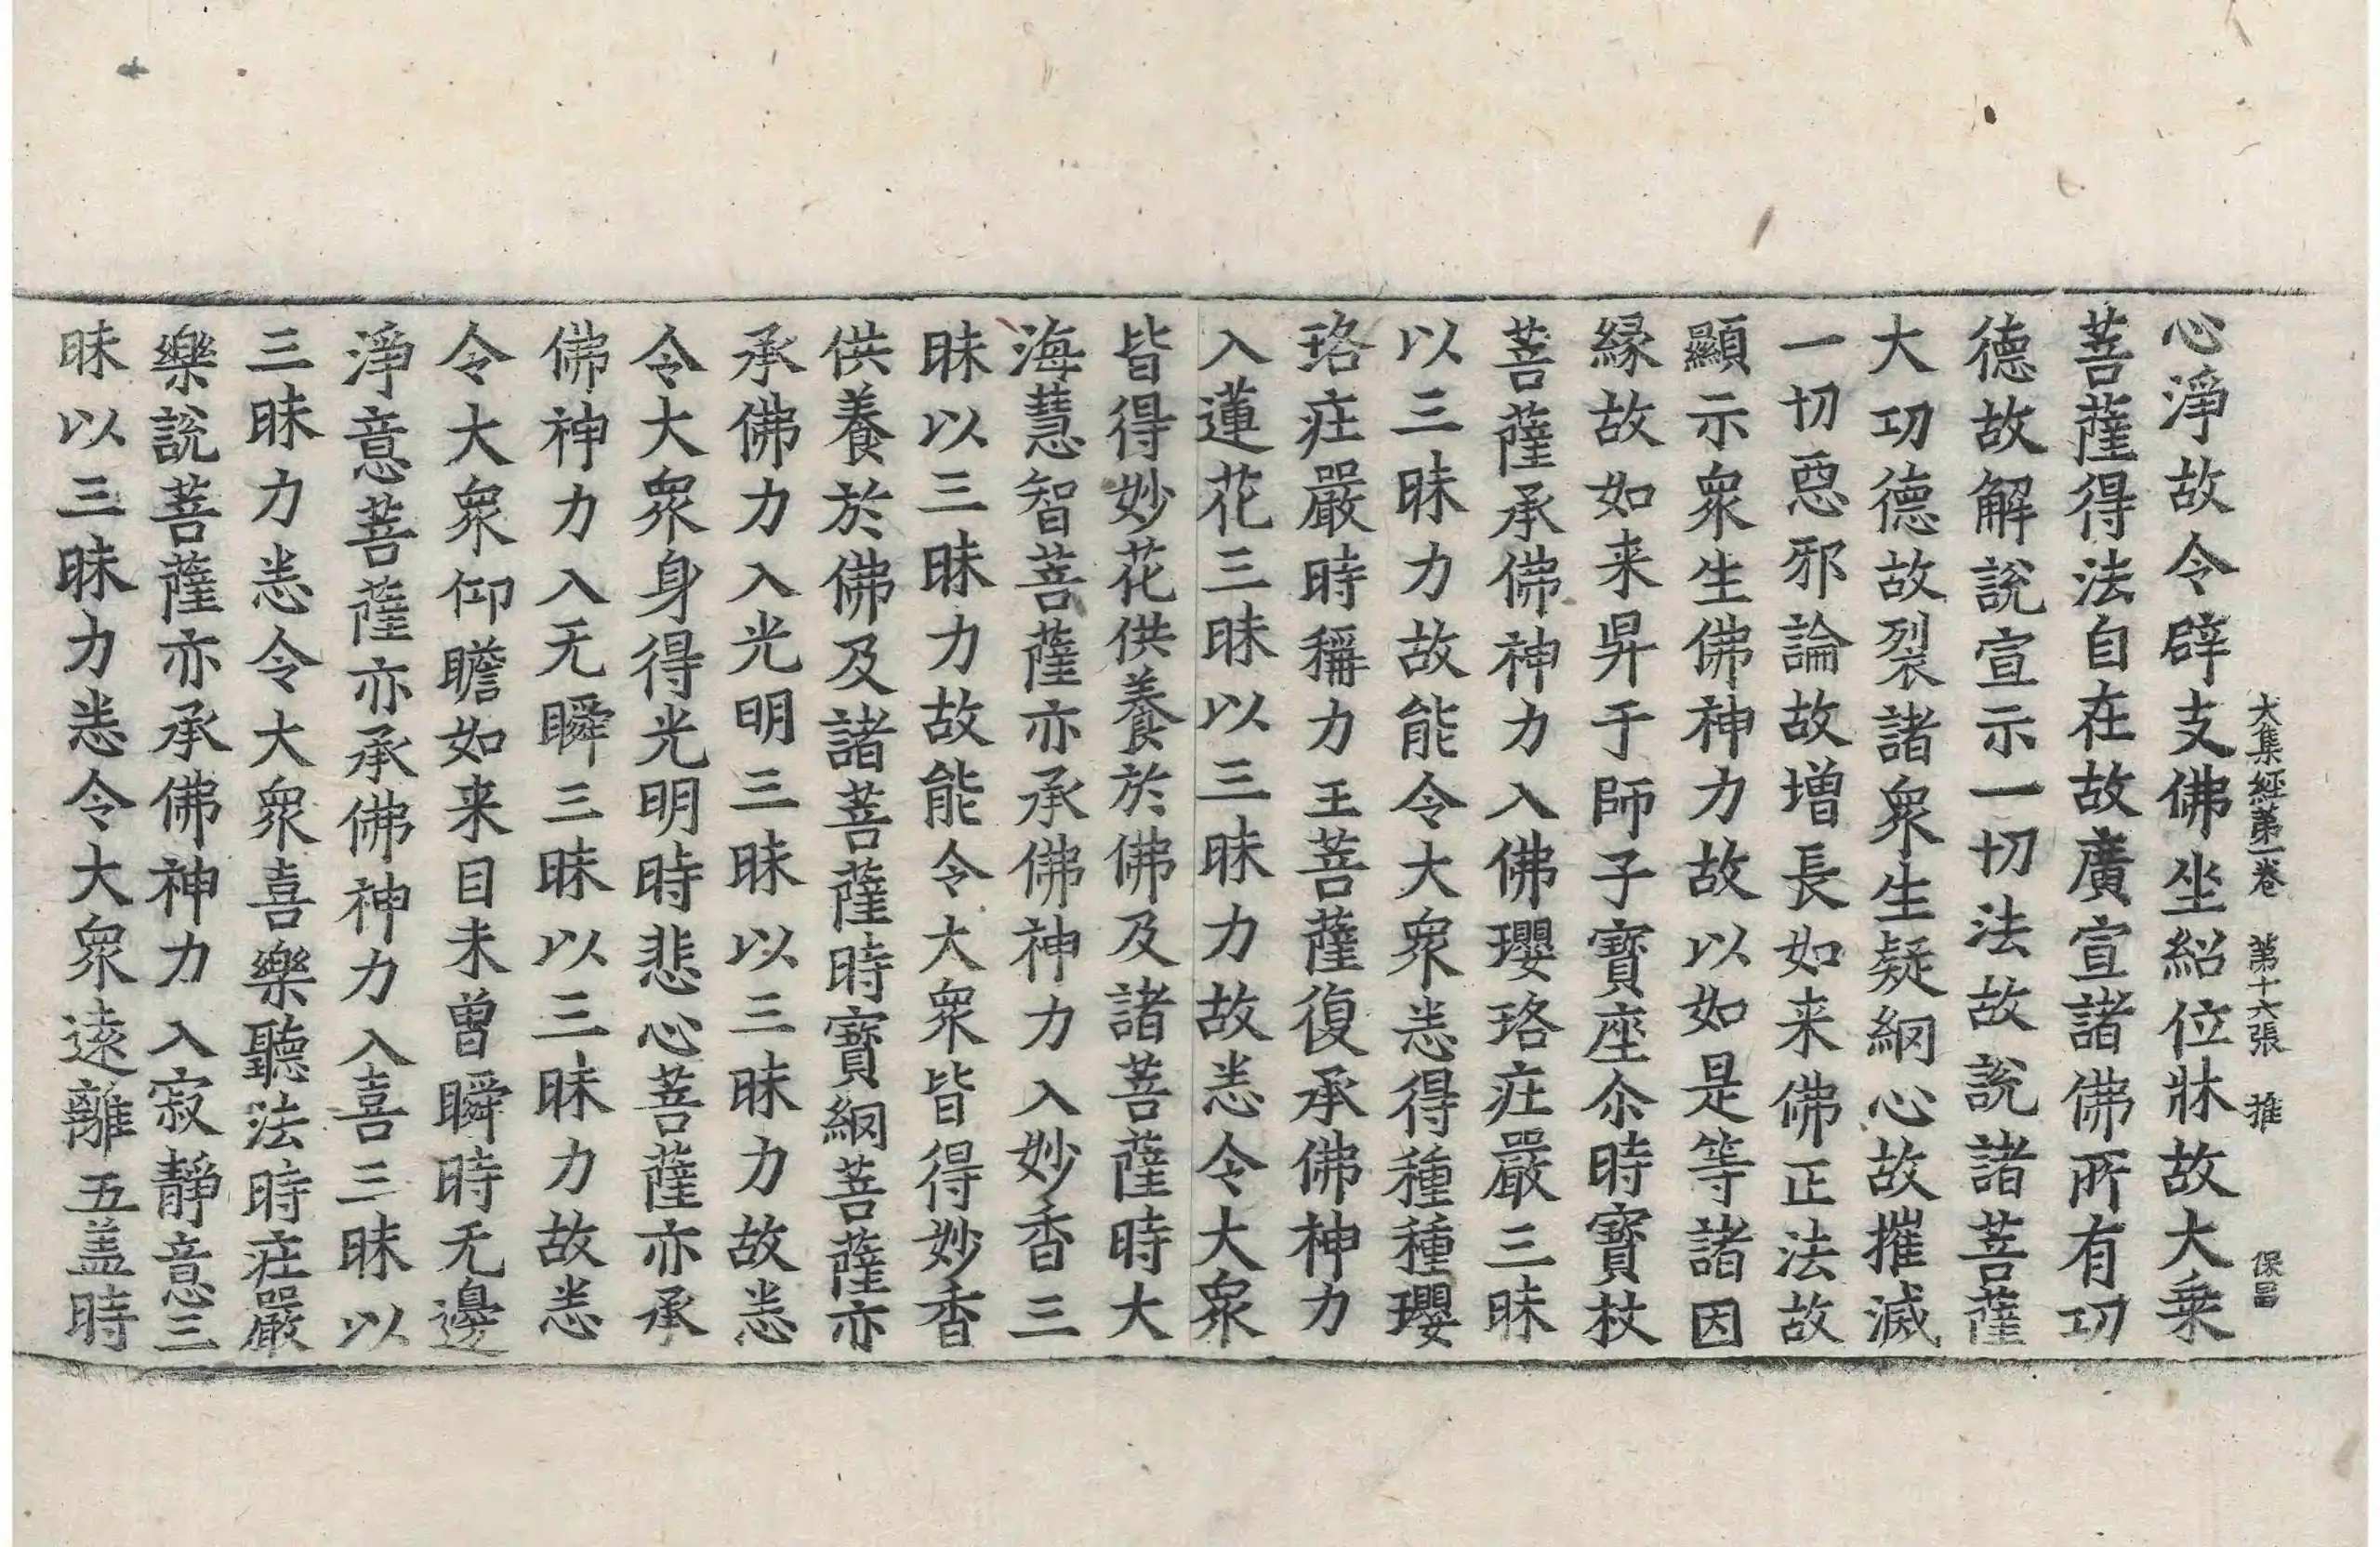 大集經第一卷　第十六張　推　保昌
心淨故令辟支佛坐紹位牀故大乘
菩薩得法自在故廣宣諸佛所有功
德故解說宣示一切法故說諸菩薩
大功德故裂諸衆生疑網心故摧滅
一切惡邪論故增長如来佛正法故
顯示衆生佛神力故以如是等諸因
緣故如来昇于師子寶座尒時寶杖
菩薩承佛神力入佛瓔珞疘嚴三昧
以三昧力故能令大衆悉得種種瓔
珞疘嚴時稱力王菩薩復承佛神力
入蓮花三昧以三昧力故悉令大衆
皆得妙花供養於佛及諸菩薩時大
海慧智菩薩亦承佛神力入妙香三
昧以三昧力故能令大衆皆得妙香
供養於佛及諸菩薩時寶網菩薩亦
承佛力入光明三昧以三昧力故悉
令大衆身得光明時悲心菩薩亦承
佛神力入无瞬三昧以三昧力故悉
令大衆仰瞻如来目未曾瞬時无邊
淨意菩薩亦承佛神力入喜三昧以
三昧力悉令大衆喜樂聽法時疘嚴
樂說菩薩亦承佛神力入寂靜意三
昧以三昧力悉令大衆遠離五盖時